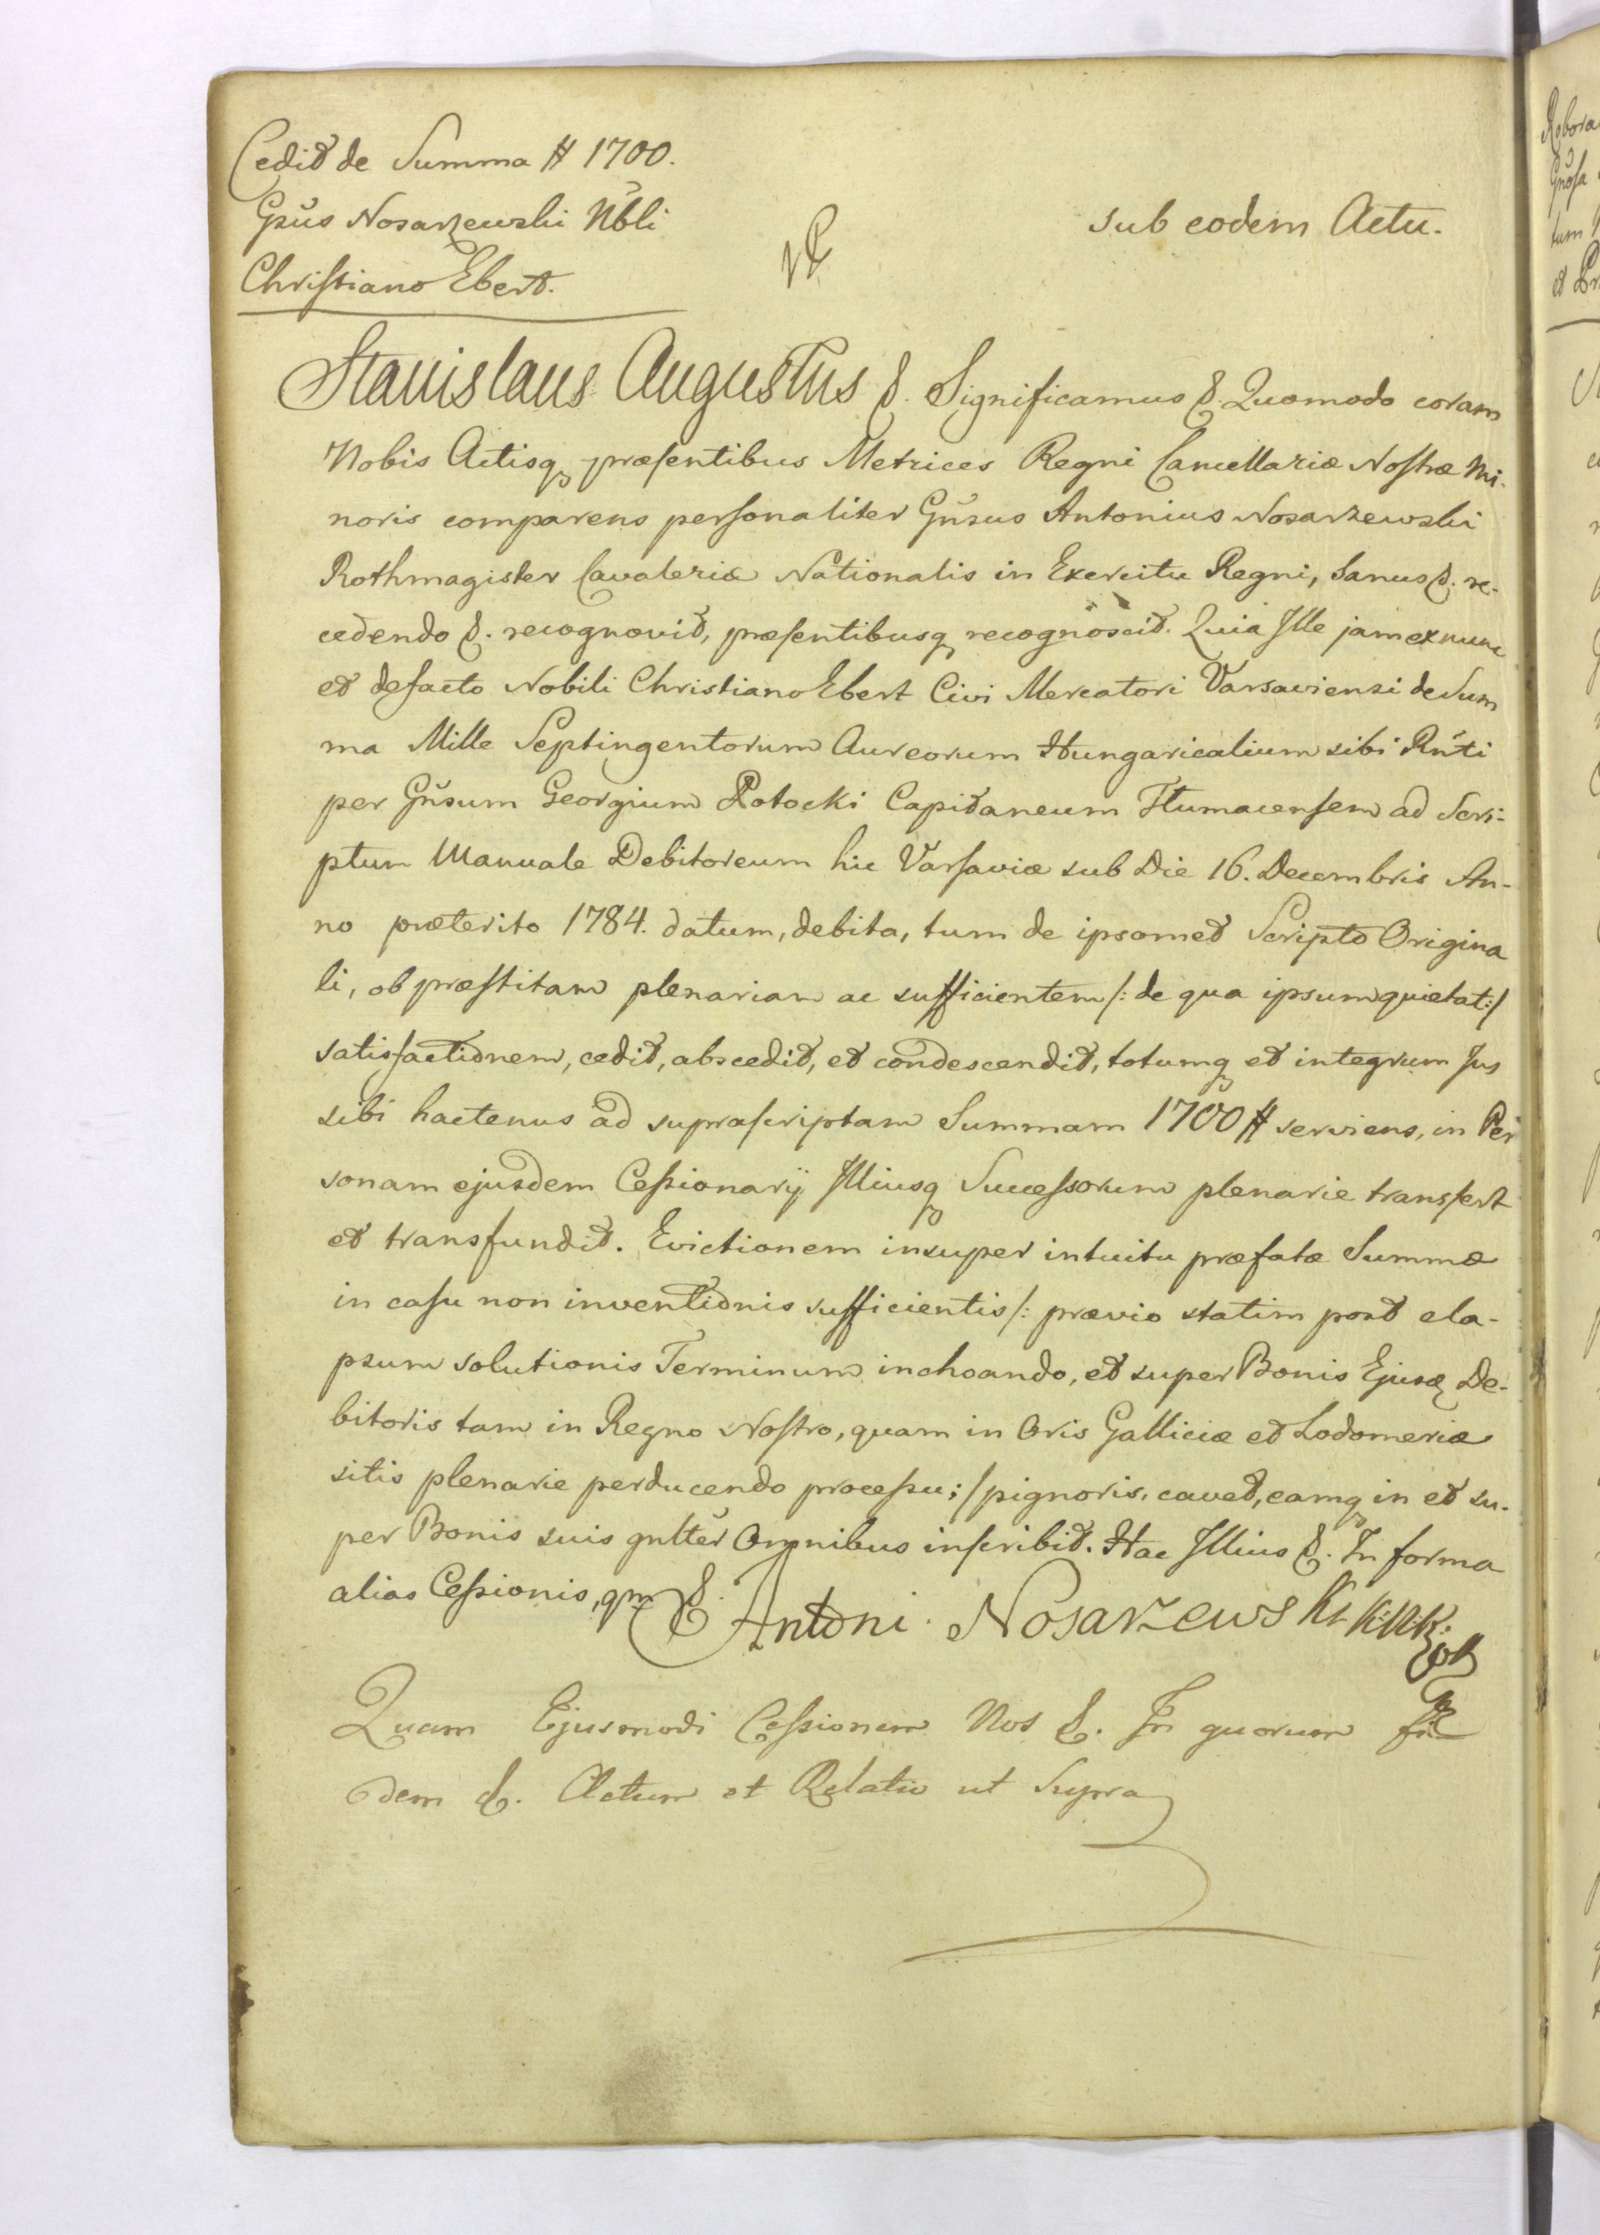 Cedit de Summa # 1700.
Gnsus Nosarzewski Nbli
Christiano Ebert.
sub eodem Actu.
Stanislaus Augustus &. Significamus &. Quomodo coram
Nobis Actisq, præsentibus Metrices Regni Cancellariæ Nostræ Mi-
noris comparens personaliter Gnsus Antonius Nosarzewski
Rothmagister Cavaleriæ Nationalis in Exercitu Regni, Sanus &. re-
cedendo &. recognovit, præsentibusq, recognoscit. Quia Ille jam ex nunc
et defacto Nobili Christiano Ebert Civi Mercatori Varsaviensi de Sum
ma Mille Septingentorum Aureorum Hungaricalium sibi Rnti
per Gnsum Georgium Potocki Capitaneum Tlumacensem ad Scri-
ptum Manuale Debitoreum hic Varsaviæ sub Die 16. Decembris An-
no præterito 1784. datum, debita, tum de ipsomet Scripto Origina
li, ob præstitam plenariam ac sufficientem /: de qua ipsum quietat :/
satisfactionem, cedit, abscedit, et condescendit, totumq, et integrum Jus
sibi hactenus ad suprascriptam Summam 1700 # serviens, in Per
sonam ejusdem Cessionarij Illiusq, Successorum plenarie transfert
et transfundit. Evictionem insuper intuitu præfatæ Summæ
in casu non inventionis sufficientis /: prævio statim post ela-
psum solutionis Terminum inchoando, et super Bonis Ejusd De-
bitoris tam in Regno Nostro, quam in Oris Galliciæ et Lodomeriæ
sitis plenarie perducendo processu; / pignoris, cavet, eamq, in et su-
per Bonis suis gnlter Omnibus inscribit. Hac Illius &. In forma
alias Cessionis, qm &.
Antoni Nosarzewski
Quam Ejusmodi Cessionem Nos &. In quorum fi
dem &. Actum et Relatio ut Supra